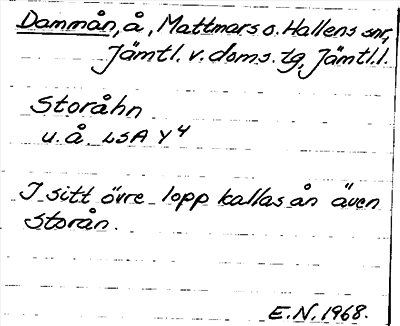 Dammån, å, Mattmars o. Hallens snr,
Jämtl. v. doms. tg, Jämtl.l.
Storåhn
u.å. LSA Y4
I sitt övre lopp kallas ån även
Storån.
E.N. 1968.